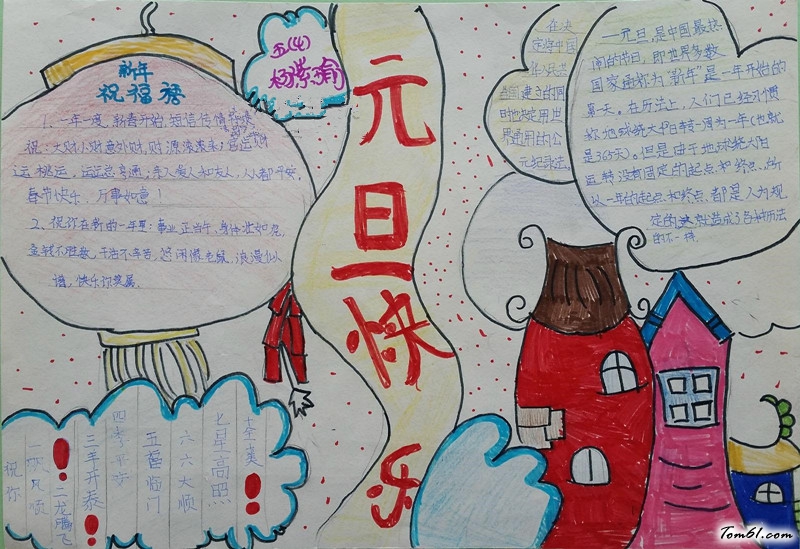 新年
祝福语
1、一年一度,新春开始,短信传情
祝:大财小财意外财,财源滚滚来;官运
运桃运,运运亨通;亲人爱人和友人,人人都平安,
春节快乐,万事如意!
2、祝你在新的一年里:事业正当午,身体壮如虎,
金钱不胜数,干活不辛苦,悠闲像老鼠,浪漫似
谱,快乐你莫属。
五(4)
杨紫瑜
元旦快乐
在决
定将中国
华人民共
和国建立的同
时也决定用世
界通用的公
元纪录法。
元旦,是中国最热
闹的节日,即世界多数
国家通称为“新年”是一年开始的
第一天。在历法上,人们已经习惯
称地球绕太阳转一周为一年(也就
是365天)。但是由于地球绕太阳
运转没有固定的起点和终点,所
以一年的起点和终点,都是人为规
定的,这就造成了各种历法
的不一样
祝你
一帆风顺
!二龙腾飞
三羊开泰!
四季平安
五福临门
六六大顺
七星高照
十全美!
Tom61.com